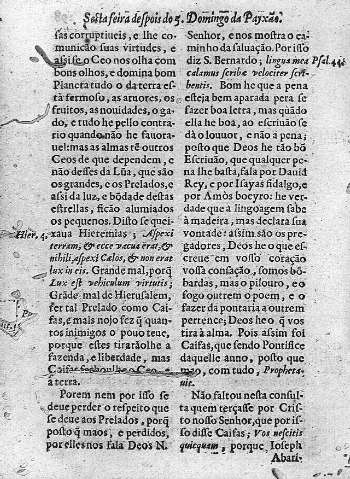 Sesta feira despois do 5. Domingo da Payxão.
sas corruptiueis, e lhe co-
municão suas virtudes, e
assi se o Ceo nos olha com
bons olhos, e domina bom
Planeta tudo o da terra es-
tá fermoso, as aruores, os
fruitos, as nouidades, o ga-
do, e tudo he pello contra-
rio quando não he fauora-
uel: mas as almas tẽ outros
Ceos de que dependem, e
não desses da Lũa, que são
os grandes, e os Prelados, e
assi da luz, e bõdade destas
estrellas, ficão alumiados
os pequenos. Disto se quei-
xaua Hieremias; Aspexi
terram, & ecce vacua erat, &
nihili, aspexi Cælos, & non erat
lux in eis. Grande mal, porq̃
Lux est vehiculum virtutis;
Grãde mal de Hierusalem,
ser tal Prelado como Cai-
fas, e mais nojo fez q̃ quan-
tos inimigos o pouo teue,
porque estes tirarãolhe a
fazenda, e liberdade, mas
Caifas
à terra.
Porem nem por isso se
deue perder o respeito que
se deue aos Prelados, porq̃
posto q̃ maos, e perdidos,
por elles nos fala Deos N.
Hier. 4.
Senhor, e nos mostra o ca-
minho da saluação. Por isso
diz S. Bernardo; lingua mea
calamus scribæ velociter scri-
bentis. Bom he que a pena
esteja bem aparada pera se
fazer boa letra, mas quando
ella he boa, ao escriuão se
dá o louuor, e não a pena;
posto que Deos he tão bõ
Escriuão, que qualquer pe-
na lhe basta, fala por Dauid
Rey, e por Isayas fidalgo, e
por Amòs bocyro: he ver-
dade que a lingoagem sabe
à madeira, mas declara sua
vontade: assim são os pre-
gadores; Deos he o que es-
creue em vosso coração
vossa consação, somos bõ-
bardas, mas o pilouro, e o
fogo outrem o poem, e o
fazer da pontaria a outrem
pertence; Deos he o q̃ vos
tira à alma. Pois assim foi
Caifas, que sendo Pontifice
daquelle anno, posto que
mao, com tudo, Propheta-
uit.
Não faltou nesta consul-
ta quem terçasse por Cris-
to nosso Senhor, que por is-
so disse Caifas; Vos nescitis
quicquam, porque Ioseph
Abari-
Psal. 44.